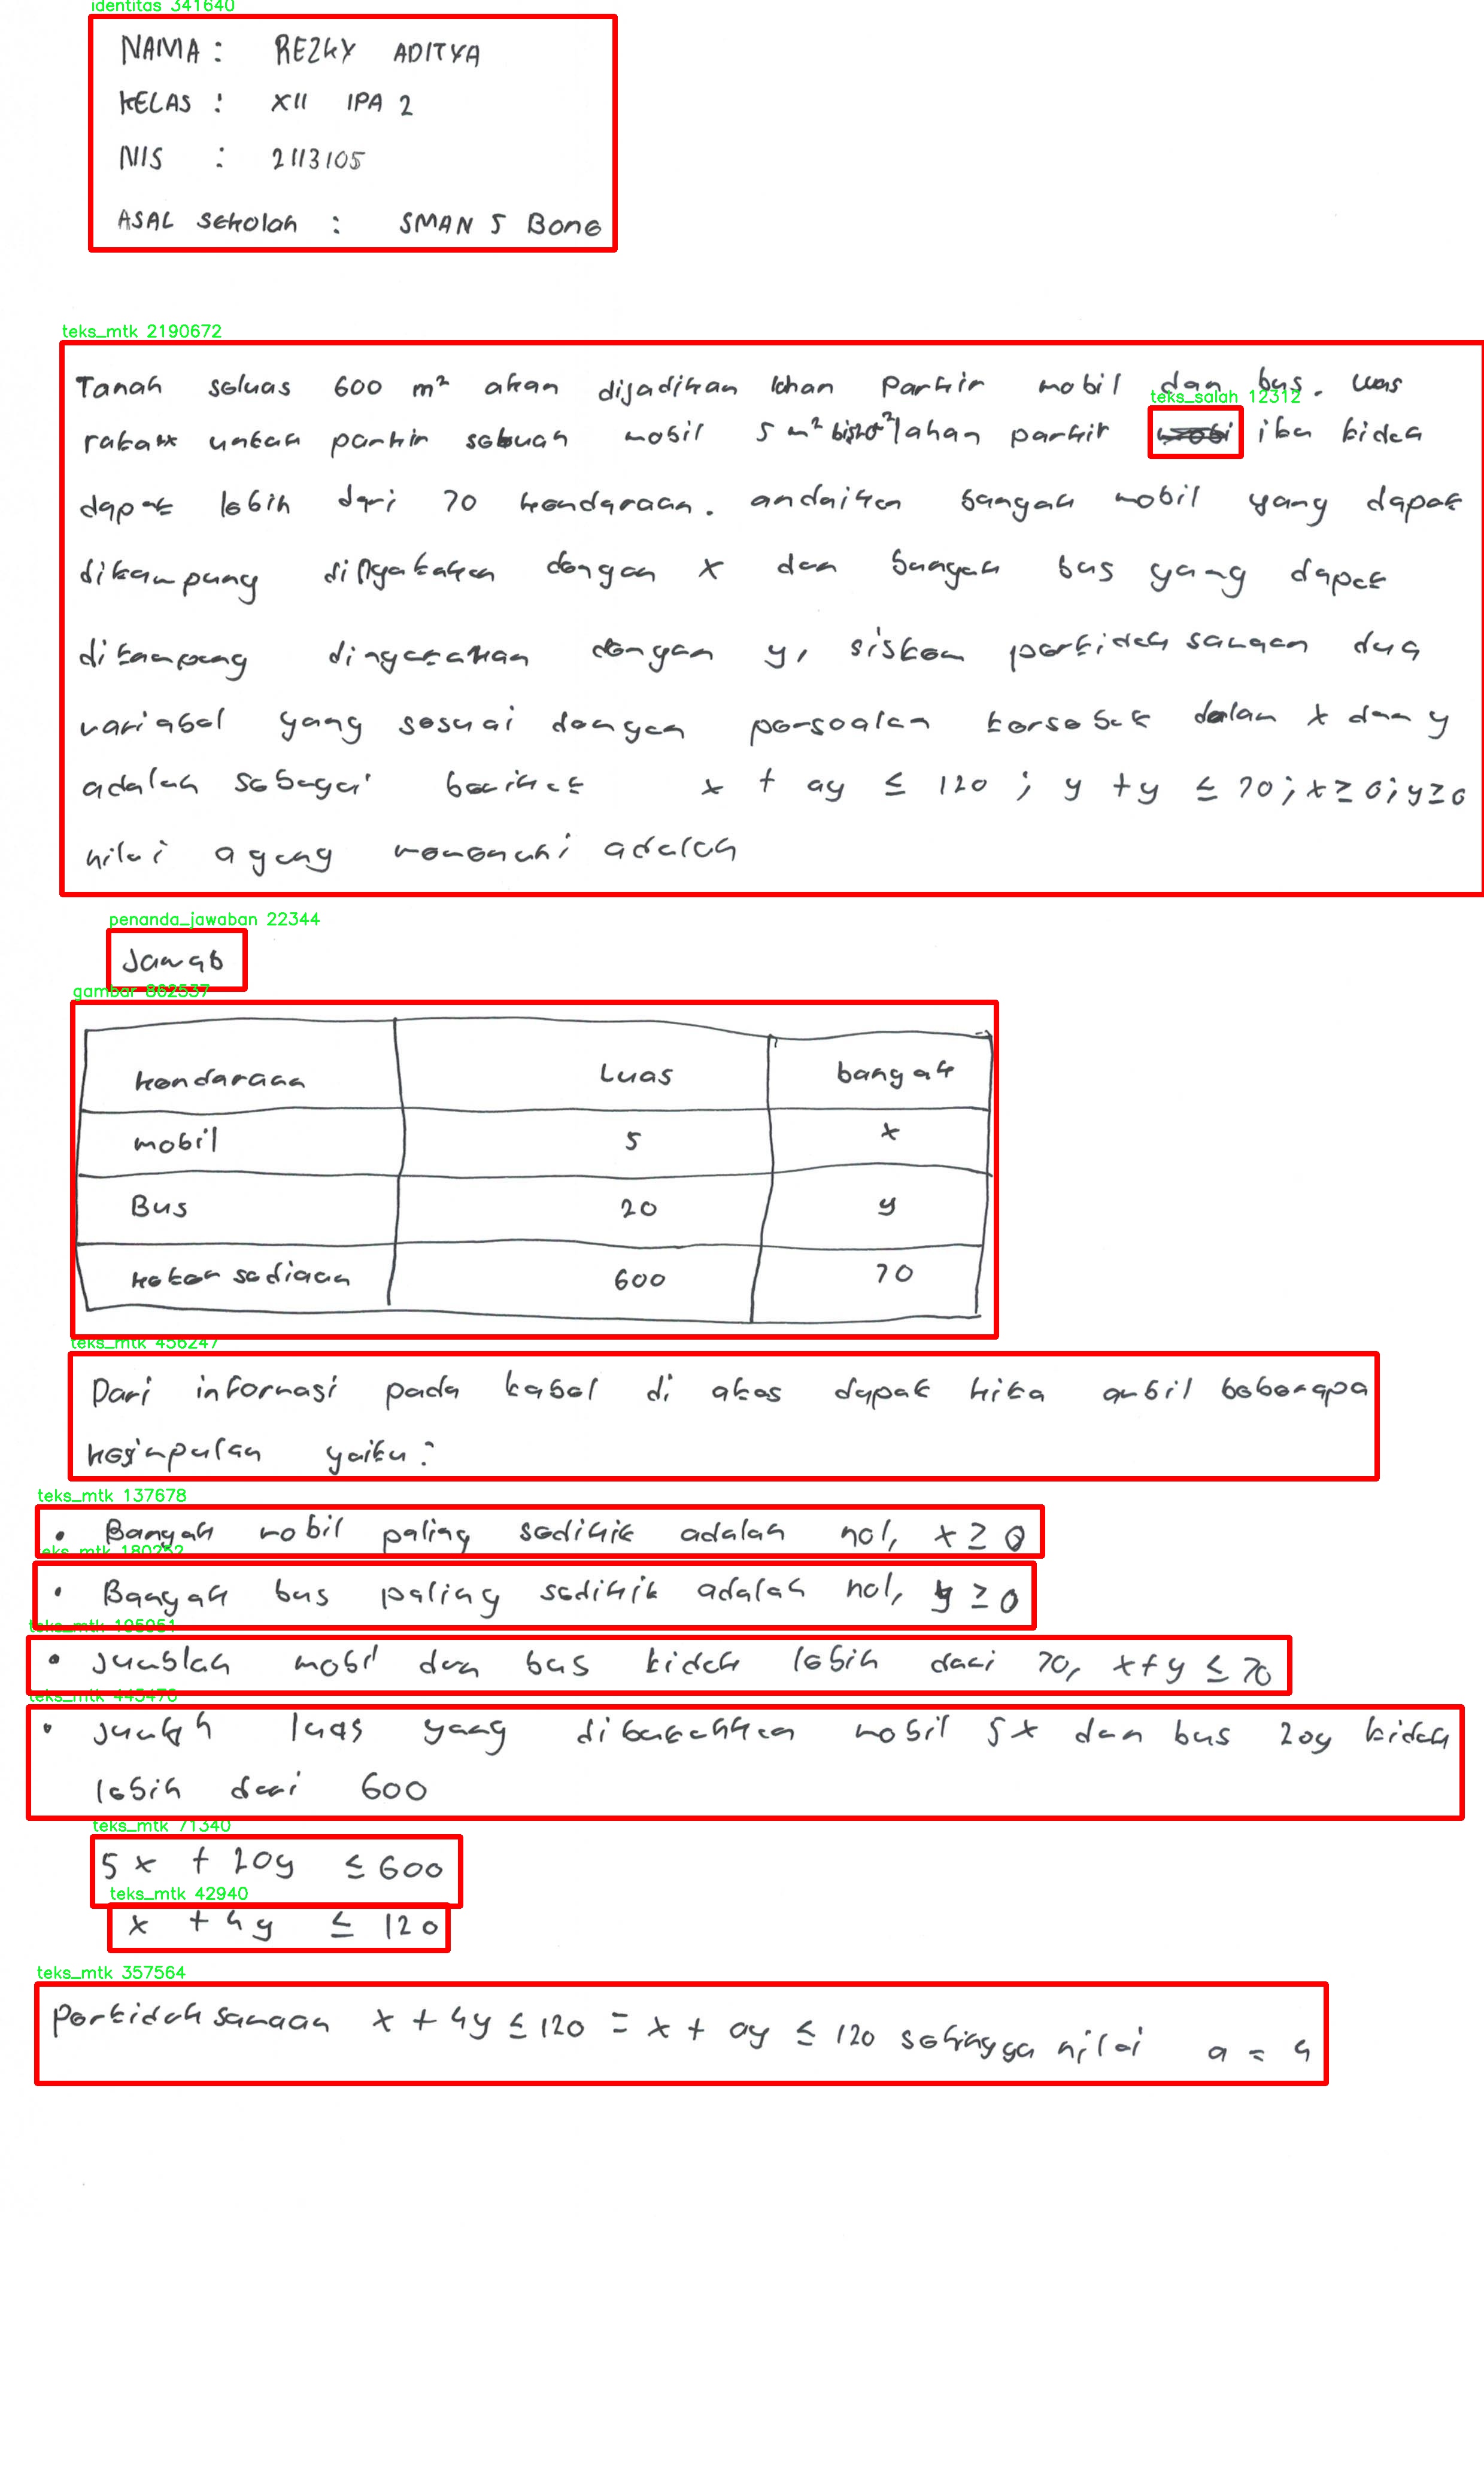 identitas 341640
NAMA : REZKY ADITYA
KELAS : XII IPA 2
NIS : 2113105
ASAL Sekolah : SMAN 5 Bone
teks_mtk 2190672
Tanah seluas 600 m² akan dijadikan lahan Parkir mobil dan bus. luas
teks_salah 12312
rata untuk parkir sebuah mobil 5 m² lahan parkir itu tidak
dapat lebih dari 70 kendaraan. andaikan banyak mobil yang dapat
ditampung dinyatakan dengan x dan banyak bus yang dapat
ditampung dinyatakan dengan y, sistem pertidaksamaan dua
variabel yang sesuai dengan persoalan tersebut dalam x dan y
adalah sebagai berikut x + ay ≤ 120 ; y + y ≤ 70 ; x ≥ 0 ; y ≥ 0
nilai a yang memenuhi adalah
penanda_jawaban 22344
Jawab
gambar 862537
kendaraan Luas banyak
mobil 5 x
Bus 20 y
ketersediaan 600 70
teks_mtk 456247
Dari informasi pada tabel di atas dapat kita ambil beberapa
kesimpulan yaitu :
teks_mtk 137678
• Banyak mobil paling sedikit adalah nol, x ≥ 0
eks_mtk 180252
• Banyak bus paling sedikit adalah nol, y ≥ 0
teks_mtk 195951
• Jumblah mobil dan bus tidak lebih dari 70, x + y ≤ 70
teks_mtk 445478
• Jumlah luas yang dibutuhkan mobil 5x dan bus 20y tidak
lebih dari 600
teks_mtk 71340
5x + 20y ≤ 600
teks_mtk 42940
x + 4y ≤ 120
teks_mtk 357564
Pertidaksamaan x + 4y ≤ 120 = x + ay ≤ 120 sehingga nilai a = 4